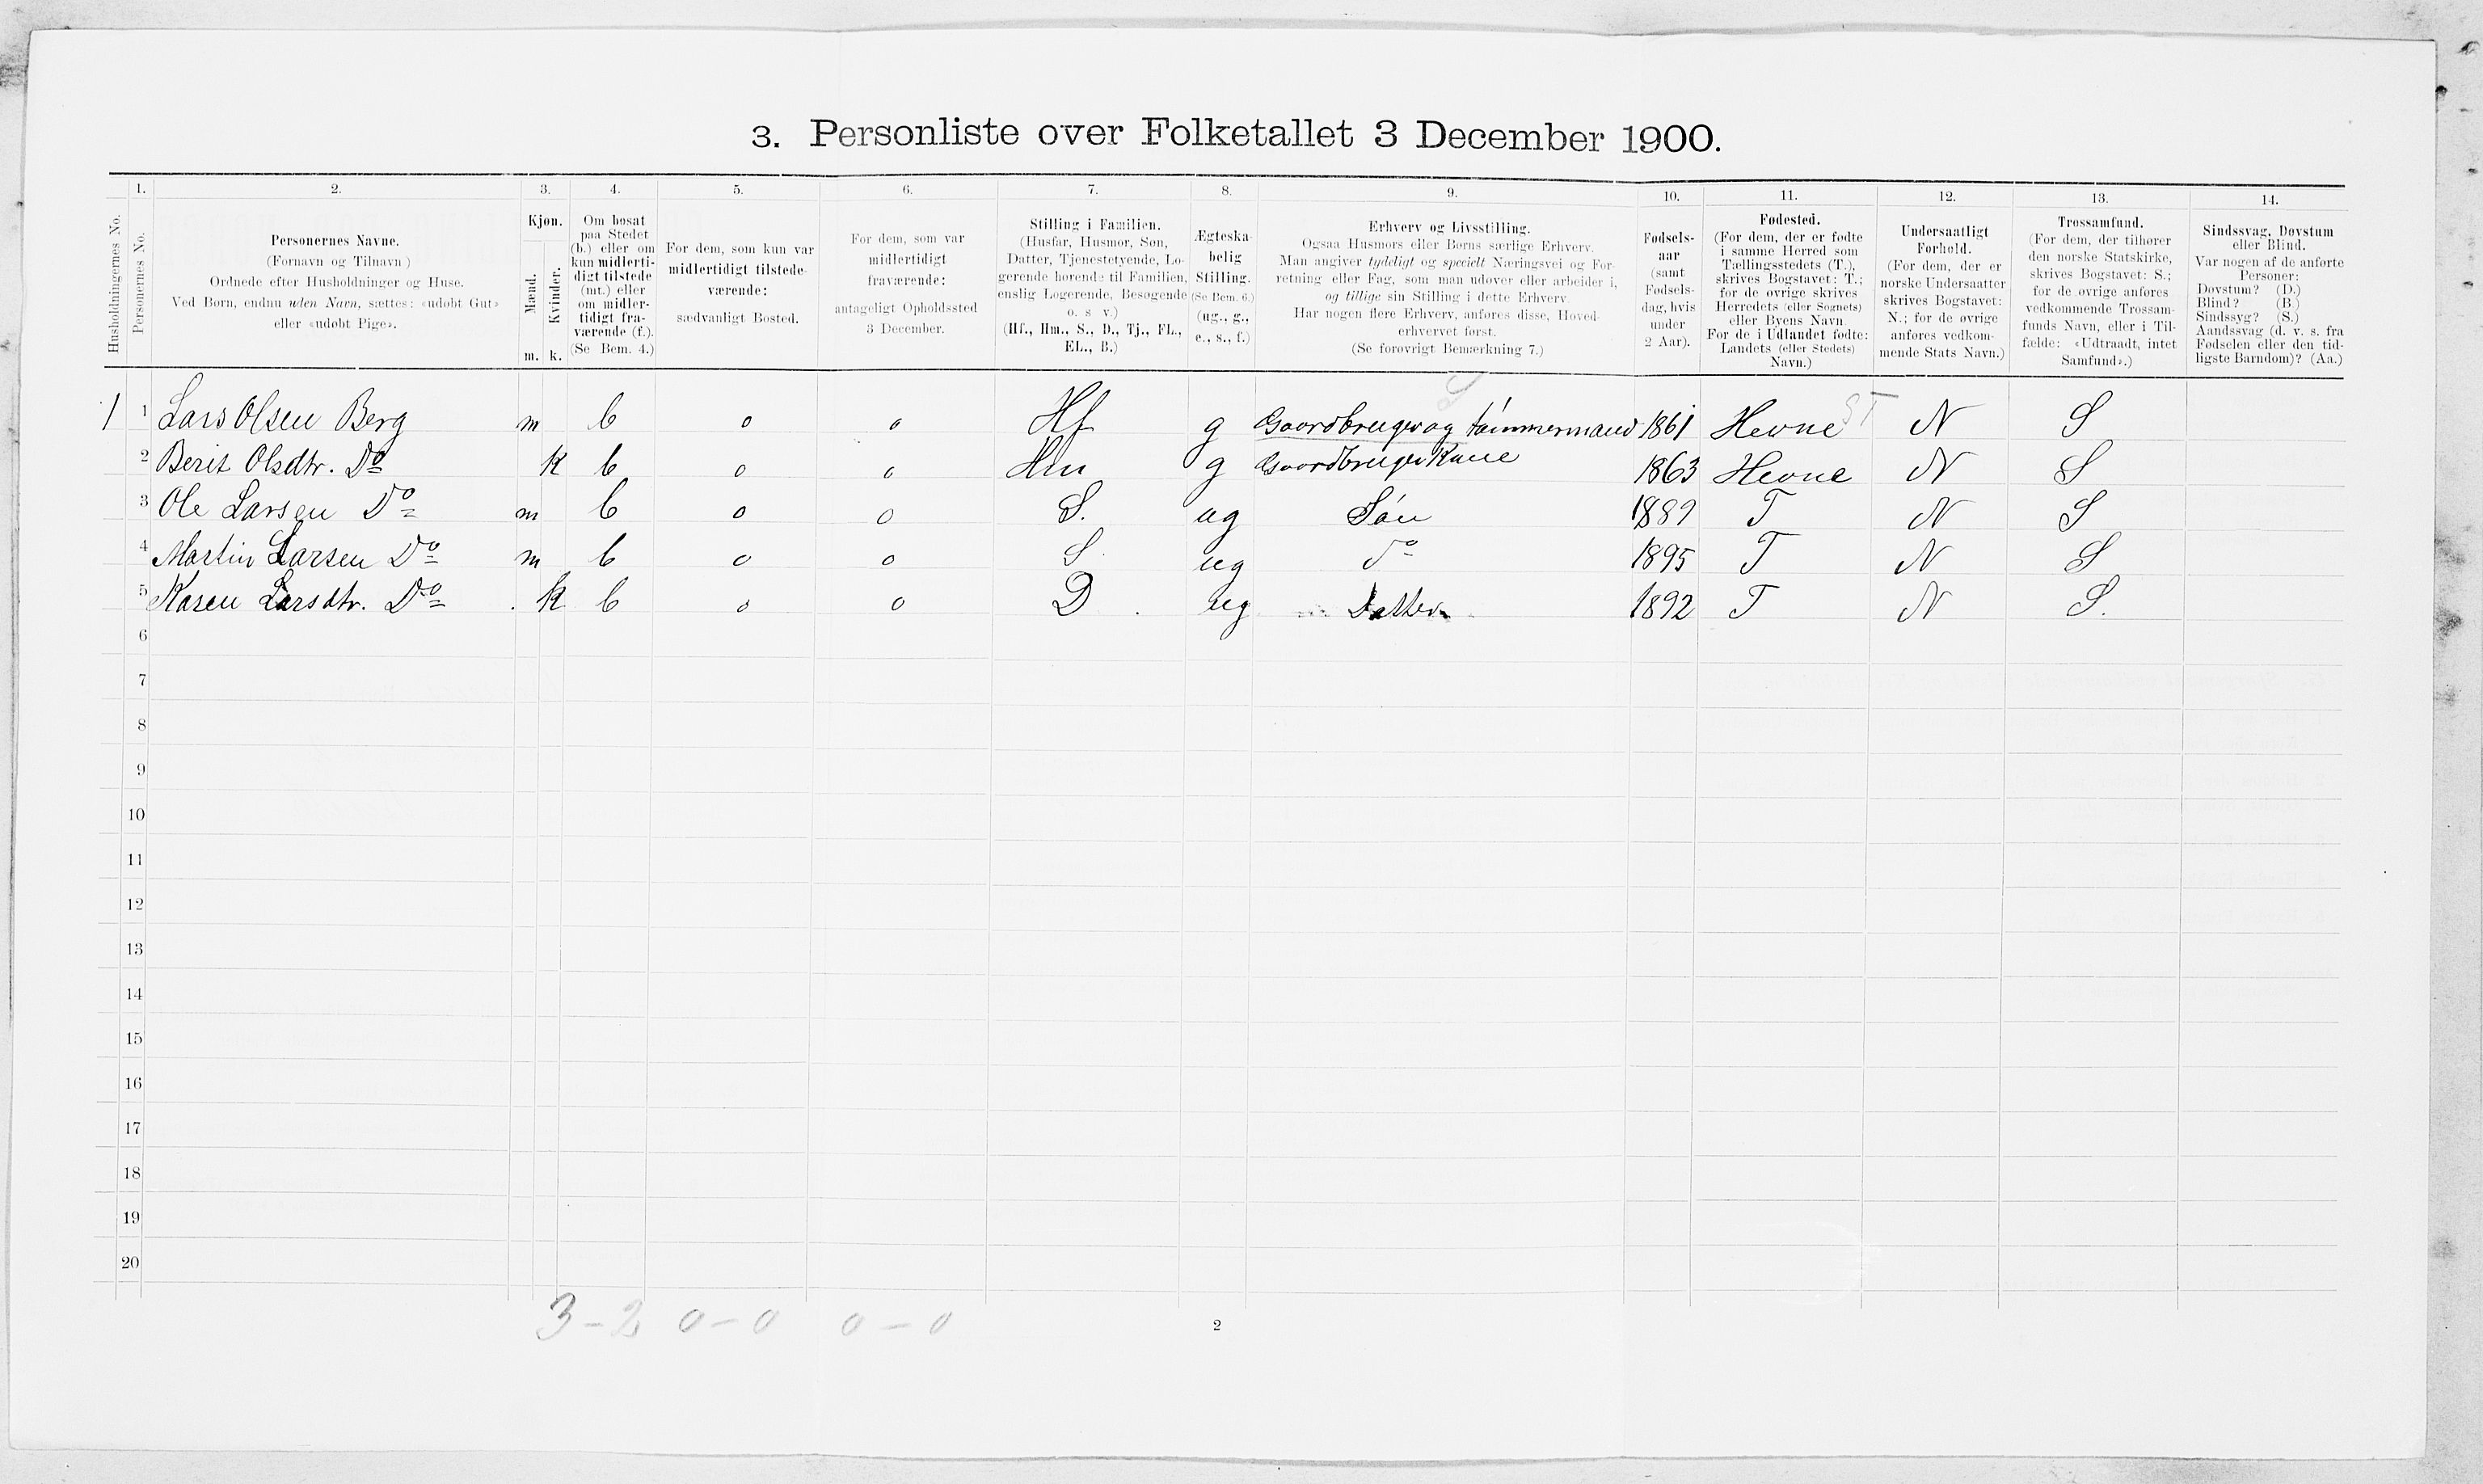 3. Personliste over Folketallet 3 December 1900.
1. 2. 3. 4. 5. 6. 7. 8. 9. 10. 11. 12. 13. 14.
Husholdningernes No.
Personernes No.
Personernes Navne.
(Fornavn og Tilnavn)
Ordnede efter Husholdninger og Huse.
Ved Børn, endnu uden Navn, sættes: «udøbt Gut»
eller «udøbt Pige».
Kjøn.
Mænd.
Kvinder.
m. k.
Om bosat
paa Stedet
(b.) eller om
kun midlerti-
digt tilstede
(mt.) eller
om midler-
tidigt fra-
værende (f.).
(Se Bem. 4.)
For dem, som kun var
midlertidigt tilstede-
værende:
sædvanligt Bosted.
For dem, som var
midlertidigt
fraværende:
antageligt Opholdssted
3 December.
Stilling i Familien.
(Husfar, Husmor, Søn,
Datter, Tjenestetyende, Lo-
gerende hørende til Familien,
enslig Logerende, Besøgende
o. s v.)
(Hf., Hm., S., D., Tj., FL.,
EL., B.)
Ægteska-
belig
Stilling.
(Se Bem. 6.)
(ug., g.,
e., s., f.)
Erhverv og Livsstilling.
Ogsaa Husmors eller Børns særlige Erhverv.
Man angiver tydeligt og specielt Næringsvei og For-
retning eller Fag, som man udøver eller arbeider i,
og tillige sin Stilling i dette Erhverv.
Har nogen flere Erhverv, anføres disse, Hoved-
erhvervet først.
(Se forøvrigt Bemærkning 7.)
Fødsels-
aar
(samt
Fødsels-
dag, hvis
under
2 Aar).
Fødested.
(For dem, der er fødte
i samme Herred som
Tællingsstedets (T.),
skrives Bogstavet: T.;
for de øvrige skrives
Herredets (eller Sognets)
eller Byens Navn.
For de i Udlandet fødte:
Landets (eller Stedets)
Navn.)
Undersaatligt
Forhold.
(For dem, der er
norske Undersaatter
skrives Bogstavet:
N.; for de øvrige
anføres vedkom-
mende Stats Navn.)
Trossamfund.
(For dem, der tilhører
den norske Statskirke,
skrives Bogstavet: S.;
for de øvrige anføres
vedkommende Trossam-
funds Navn, eller i Til-
fælde: «Udtraadt, intet
Samfund».)
Sindssvag, Døvstum
eller Blind.
Var nogen af de anførte
Personer:
Døvstum? (D.)
Blind? (B.)
Sindssyg? (S.)
Aandssvag (d. v. s. fra
Fødselen eller den tid-
ligste Barndom)? (Aa.)
1 1 Lars Olsen Berg m b 0 0 Hf g Gaardbruger og tømmermand 1861 Hevne ST N S
2 Berit Olsdtr. Do k b 0 0 Hm g Gaardbruger Kone 1863 Hevne N S
3 Ole Larsen Do m b 0 0 S. ug Søn 1889 T N S
4 Martin Larsen Do m b 0 0 S ug do 1895 T N S
5 Karen Larsdtr. Do k b 0 0 D ug Datter 1892 T N S.
6
7
8
9
10
11
12
13
14
15
16
17
18
19
20
3 - 2 0 - 0 0 - 0
2